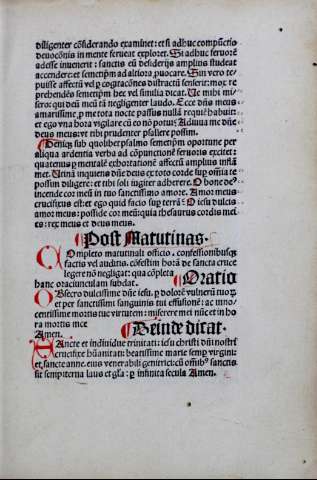 diligenter cōsiderando examinet: et si adhuc compūctio
deuocōnis in mente ferueat exploret. Si adhuc feruorē
adesse inuenerit: sanctis eū desiderijs amplius studeat
accendere: et semetip̄m ad altiora ꝓuocare. Sin vero te-
puisse affectū vel ꝑ cogitacōnes distractū senserit: mox re
prehendēs semetip̄m hec vel similia dicat. Ue mihi mi-
sero: qui deū meū tā negligenter laudo. Ecce dn̄s meus
amarissime ꝓ me tota nocte passus nullā requiē habuit:
et ego vna hora vigilare cū eo nō potui: Adiuua me dn̄e
deus meus: vt tibi prudenter psallere possim.
Deniqꝫ sub quolibet psalmo semetip̄m oportune per
aliqua ardentia verba ad cōpunctionē feruoris excitet:
quatenus ꝑ mentalē exhortationē affectū amplius inflā
met. Utinā inquiens dn̄e deus ex toto corde suꝑ om̄ia te
possim diligere: et tibi soli iugiter adherere. O bone deꝰ
incende cor meū in tuo sanctissimo amore. Amor meus
crucifixus est: et ego quid facio suꝑ terrā? O iesu dulcis
amor meus: posside cor meū: quia thesaurus cordis mei
es: rex meus et deus meus.
Post Matutinas.
Completo matutinali officio, confessionibusqꝫ
factis vel auditis. cōfestim horā de sancta cruce
legere nō negligat: qua cōpleta Oratio
hanc oraciunculam subdat.
Obsecro dulcissime dn̄e iesu. ꝑ dolorē vulnerū tuoꝝ
et per sanctissimi sanguinis tui effusionē: ac inno-
centissime mortis tue virtutem: miserere mei nūc et in ho
ra mortis mee
Amen. Deinde dicat.
Sancte et indiuidue trinitati: iesu christi dn̄i nostri
crucifixe hūanitati: beatissime marie semꝑ virgini:
et sancte anne. eius venerabili genitrici: cū om̄ibꝰ sanctis
sit sempiterna laus et gl̄a: ꝑ infinita secula Amen.